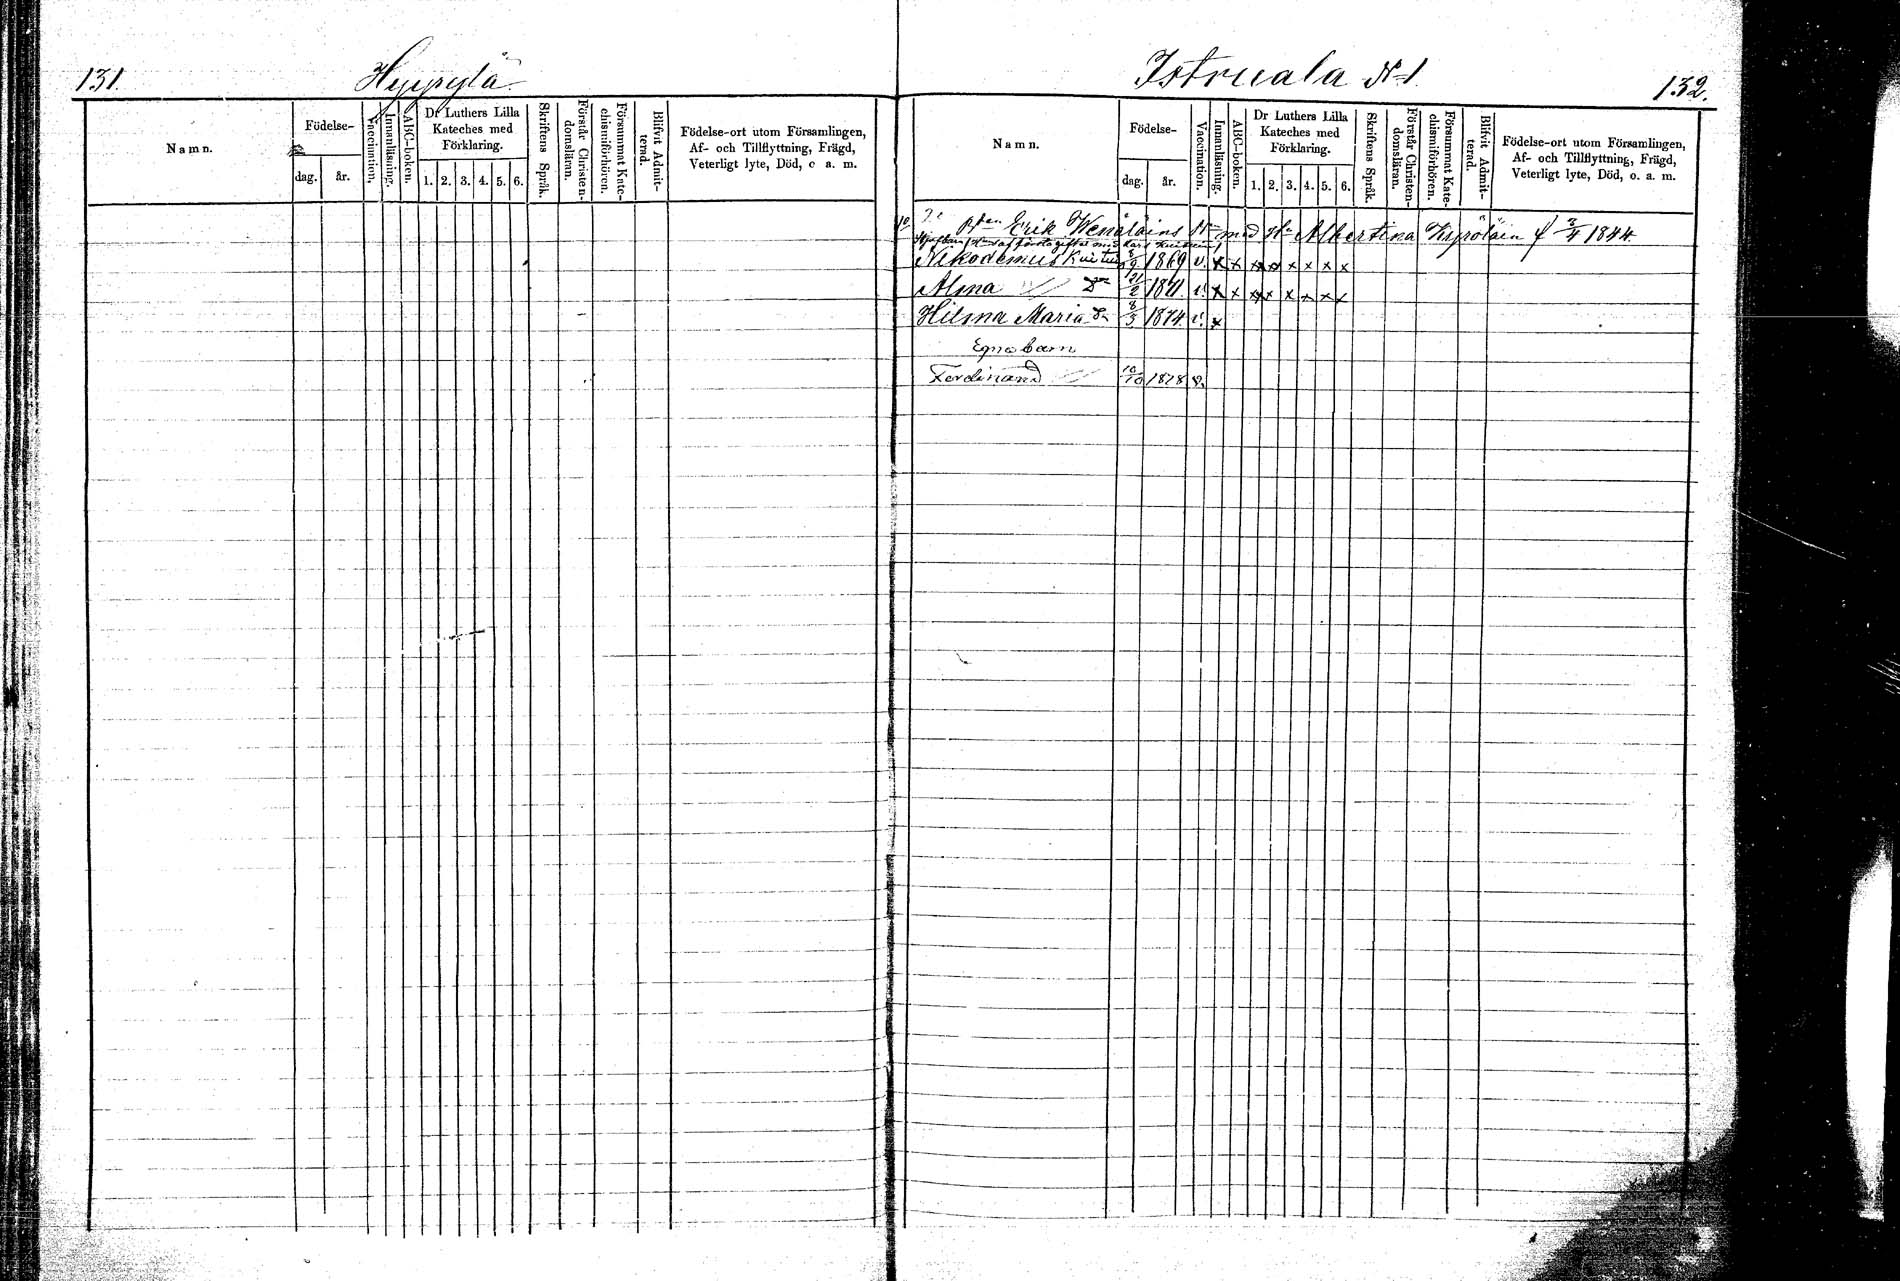 131.
Hyypylä
Namn.
Födelse-
dag.
år.
Vaccination,
Innanläsning.
ABC-boken.
Dr Luthers Lilla
Kateches med
Förklaring.
1. 2. 3. 4. 5. 6.
Skriftens Språk.
Förstår Christen-
domsläran.
Försummat Kate-
chismiförhören.
Blifvit Admit-
terad.
Födelse-ort utom Församlingen,
Af- och Tillflyttning, Frägd,
Veterligt lyte, Död, o a. m.
Istruala N 1.
132.
Namn.
Födelse-
dag.
år.
Vaccination.
Innanläsning.
ABC-boken.
Dr Luthers Lilla
Kateches med
Förklaring.
1. 2. 3. 4. 5. 6.
Skriftens Språk.
Förstår Christen-
domsläran.
Försummat Kate-
chismiförhören.
Blifvit Admit-
terad.
Födelse-ort utom Församlingen,
Af- och Tillflyttning, Frägd,
Veterligt lyte, Död, o. a. m.
Erik Wenäläins med Albertina Kypöläin f 2/4 1844.
Nikodemus 1869 v. x x x x x x x x
Alma 21/2 1871. v. x x x x x x x x
Hilma Maria 8/3 1874. v. x
Egna barn
Ferdinand 10/10 1878 v.